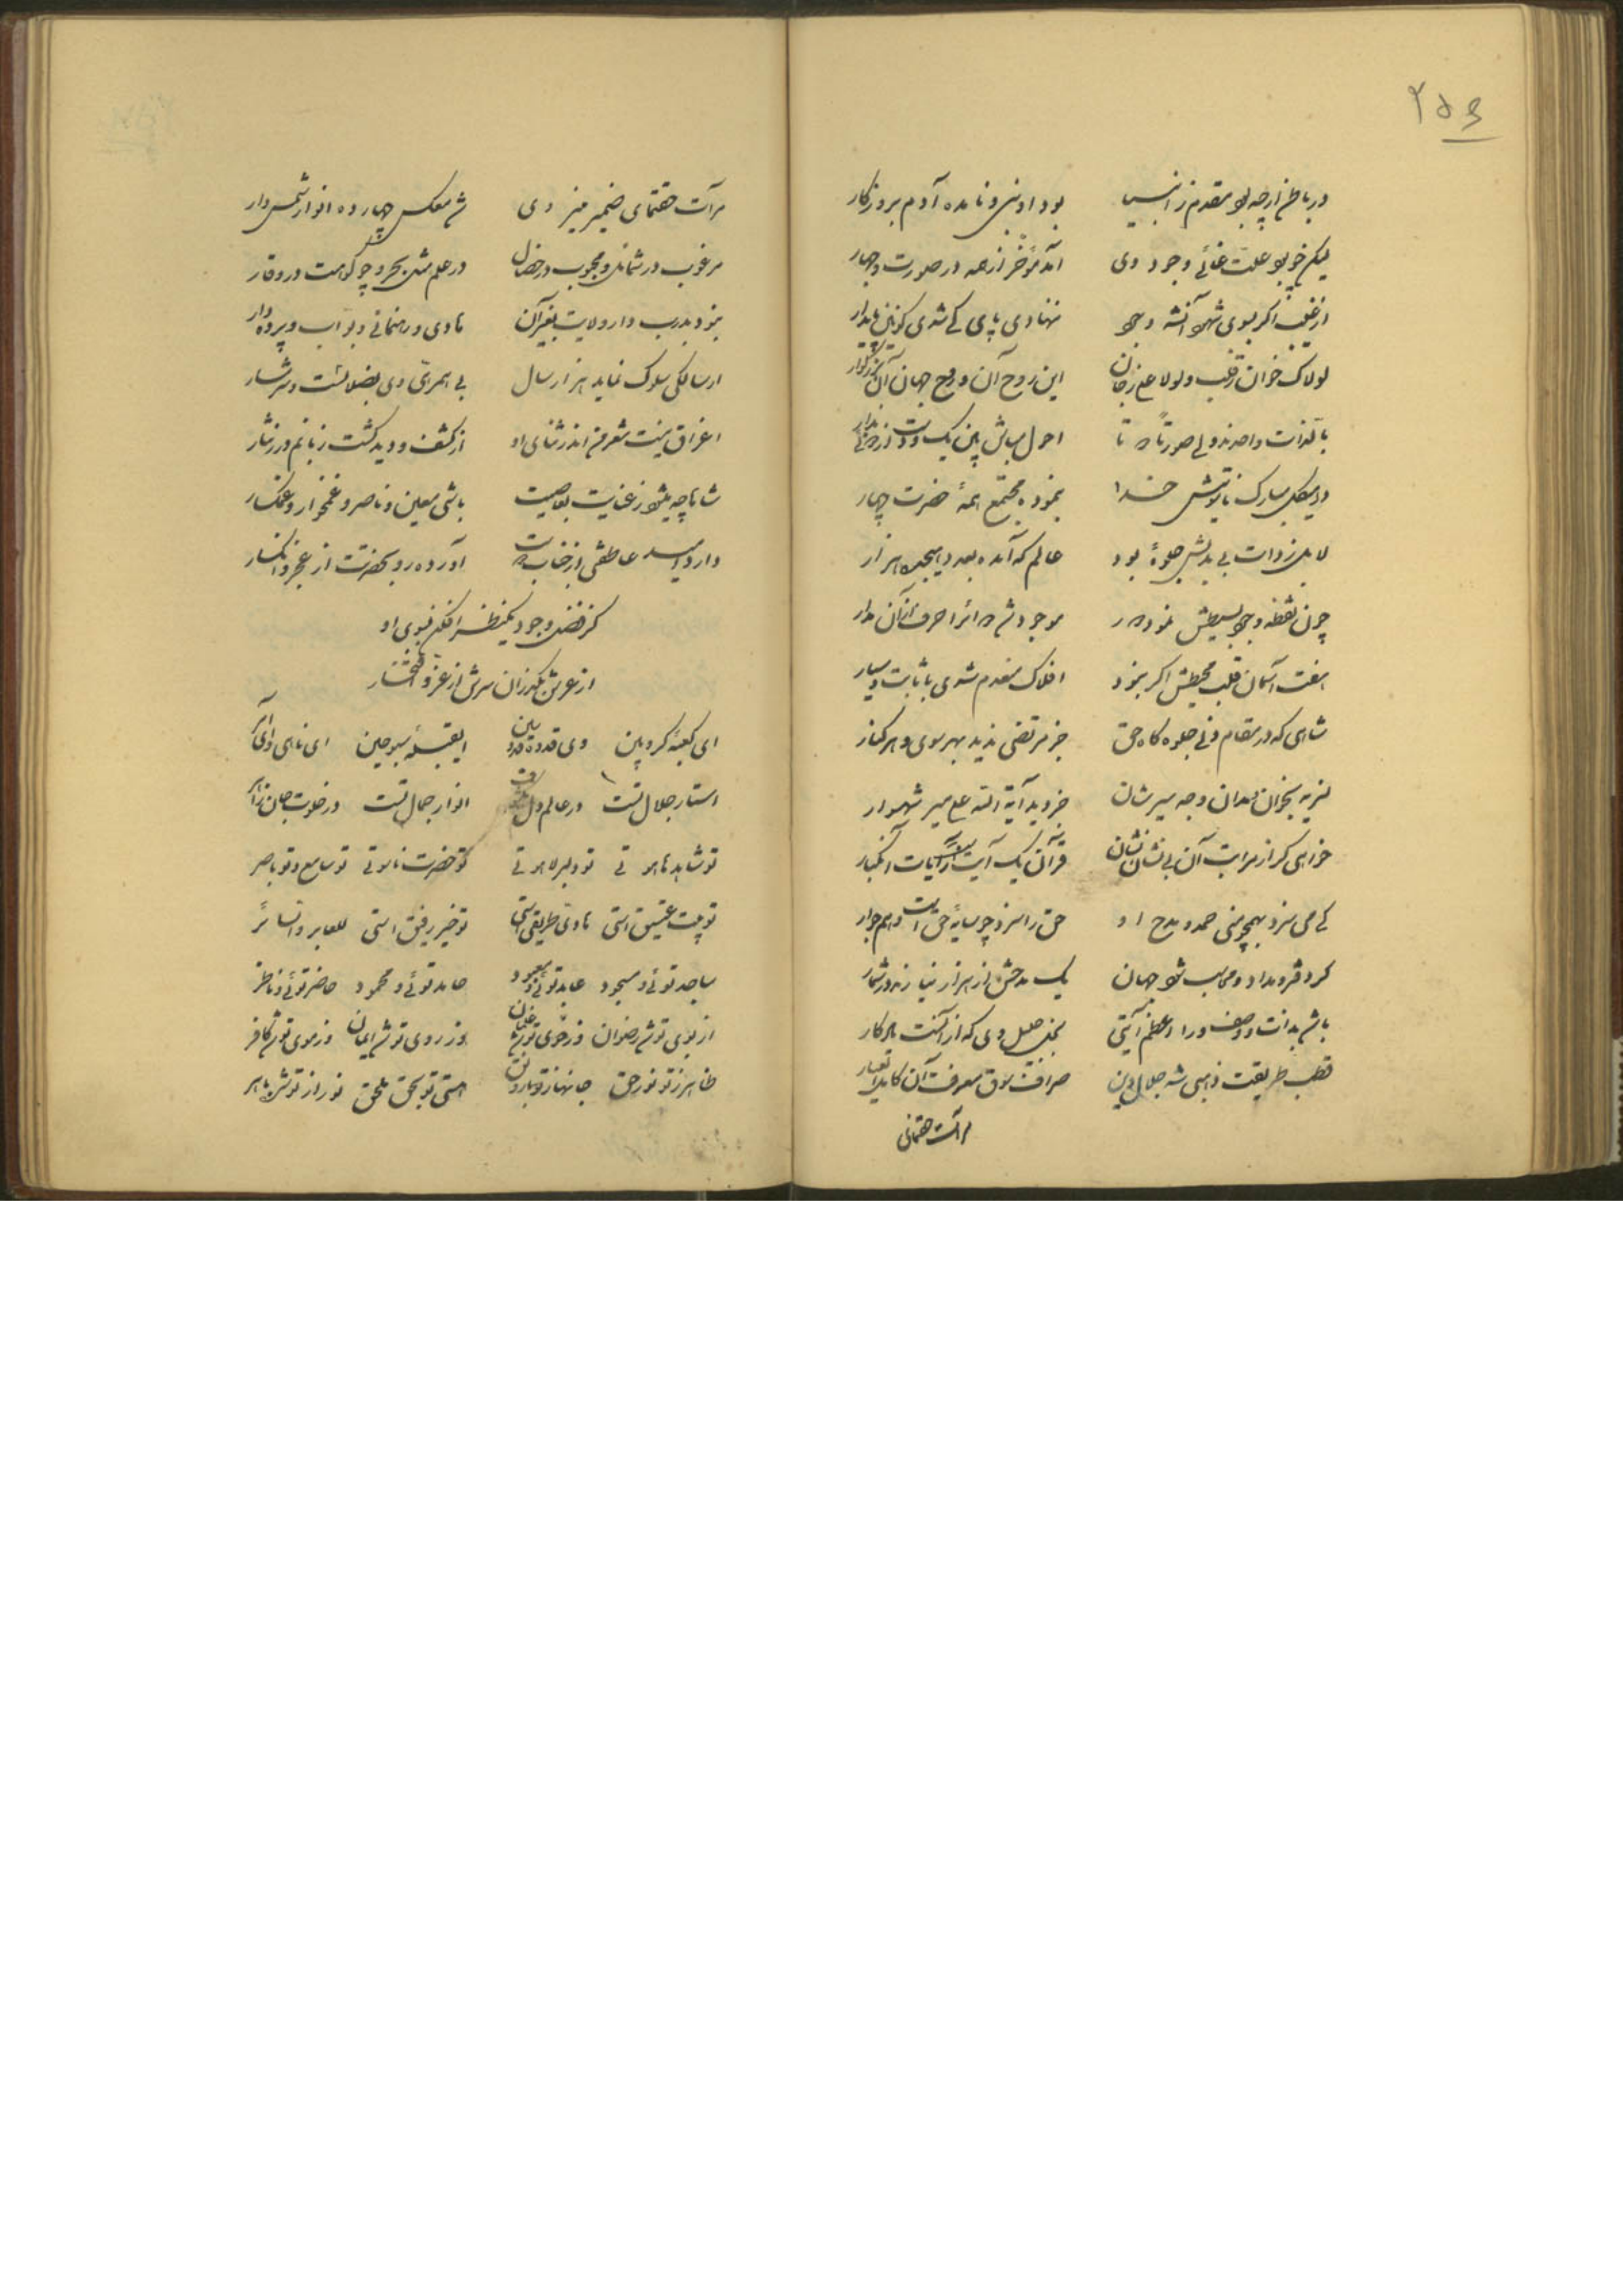 ۲۵۴
در باطن ارچه بود مقدم ز انبیا بود او نبی و نامده آدم بروزکار
لیکن چو بود علت غائی وجود وی آمد مؤخر از همه در صورت
از غیب اکر بسوی شهود آن شه وجود ننهادی پای کی شدی کونین پایدار
لولاک خوان ز قلب و لولا علی ز جان این روح آن و روح جهان آن
بالذات واحدند ولی صورتاً دو تا احول مباش بین یک و دو
در هیکل مبارک خدا بنموده مجتمع همه حضرت چهار
لابل ز ذات بی بدلش جلوهٔ بود عالم که آمده هجده هزار
چون نقطه وجود بسیطش نمود موجود شد احرف از آن مدار
هفت آسمان قلب محیطش اکر نبود افلاک منعدم شدی با ثابت و سیار
شاهی که در مقام فی جلوه کاه حق جز مرتضی ندید بهر سوی و هر کنار
بخوان بدان وجه آیة الله علی میر شهسوار
خواهی کر از مراتب آن بی نشان نشان قرآن یک آیت از آیات
کی می سزد بهمچو منی حمد و مدح او حق را سزد چو سایهٔ حق است و هم جوار
کردد مداد و محاسب شود جهان یک مدحش از هزار نیارند در شمار
باشد بذات و وصف ورا اعظم آیتی نجل جلیل وی که از آنست
قطب طریقت ذهبی شه جلال دین صراف سوق معرفت آن کامل
مرآت حقنمای
مرآت حقنمای ضمیر منیر وی شد منعکس چهارده انوار شمس وار
مرغوب در شمائل و محبوب در خصال در علم مثل بحر و چو کوهست در وقار
نبود بدرب دار ولایت بغیر آن هادی و رهنمائی و بواب و پرده دار
ار سالکی سلوک نماید هزار سال بی همرهی وی بضلالست و
اغراق نیست شعر من اندر ثنای او از کشف و دید کشت زبانم
شاها چه میشود ز عنایت باشی معین و ناصر و غمخوار و غمکسار
دارد امید عاطفتی از جناب تو آورده رو بحضرتت از عجز و انکسار
کز فضل وجود یکنظر افکن بسوی او
از عرش بکذران سرش از عز و افتخار
ای کعبهٔ کروبین وی قدوهٔ ای قبلهٔ سبوحین ای ناهی و ای آمر
استار جلال تست در عالم دل انوار جمال تست در خلوت جان
تو شاهد هاهوتی تو دلبر لاهوتی تو حضرت ناسوتی تو سامع و تو باصر
تو بیت عتیق استی هادی طریق استی تو خیر رفیق استی للعابر والسائر
ساجد توئی و مسجود عابد توئی و معبود حامد توئی و محمود حاضر توئی و ناظر
از بوی تو شد رضوان وز خوی تو شد غلمان وز روی تو شد ایمان وز موی تو شد کافر
ظاهر ز تو نور حق جانها ز تو هستی تو بحق ملحق نور از تو شده باهر